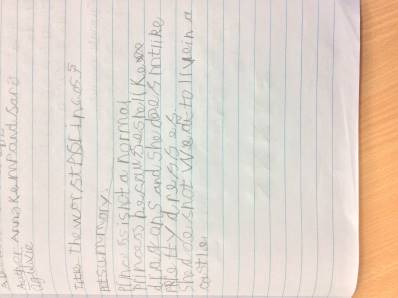 Author: Anna Kemp and Sara
Ogilvie
Title: the worst PSrincess
summary:
Princess is not a normal
Princess because she like
dragons and she does not like
Pretty dresses
She does not want to live in a
castle.